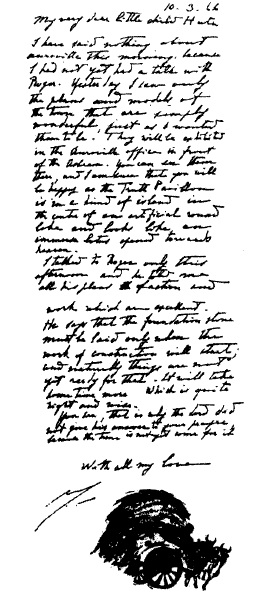 10.3.66
My very dear little child Huta
I have said nothing about
Auroville this morning, because
I had not yet had a talk with
Roger. Yesterday I saw only
the plans and models of
the town that are simply
wonderful, just as I wanted
them to be. They will be exhibited
in the Auroville office in front
of the Ashram. You can see them
there, and I am sure that you will
be happy as the Truth Pavilion
is in a kind of island in
the centre of an artificial round
lake and looks like an
immense lotus opened towards
heaven.
I talked to Roger only this
afternoon and he told me
all his plans of action and
work which are excellent.
He says that the foundation stone
must be laid only when the
work of construction will start;
and naturally things are not
yet ready for that. It will take
some time more which is quite
right and wise.
You see, that is why the Lord did
not give his answer to your prayer,
because the time is not yet come for it
With all my love